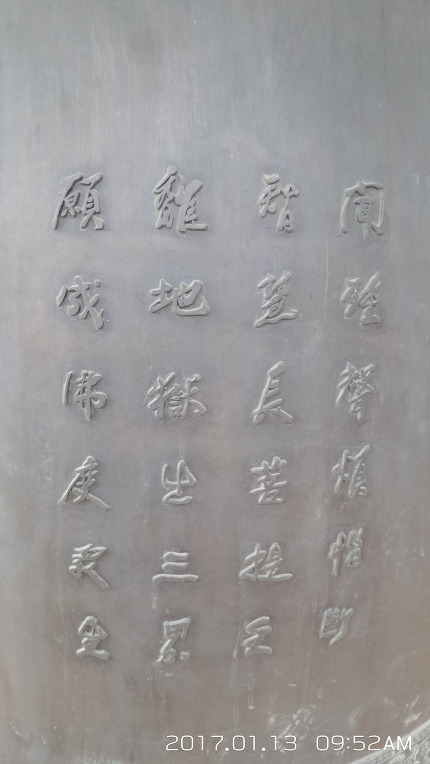 聞鐘聲煩惱斷
智慧長菩提生
離地獄出三界
願成佛度眾生
2017.01.13 09:52AM